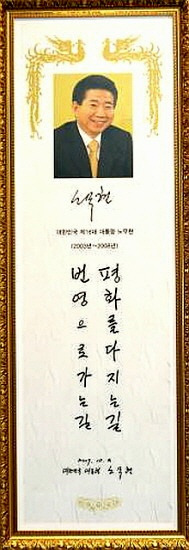 노무현
대한민국 제16대 대통령 노무현
(2003년~2008년)
평화를 다지는 길
번영으로 가는 길
2007. 10. 2
대한민국 대통령 노무현